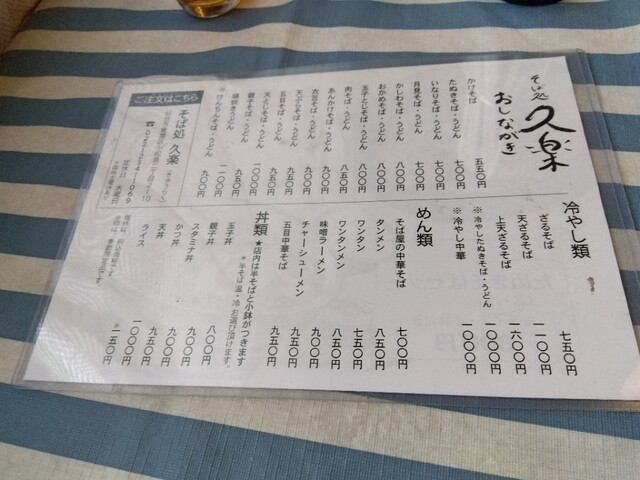 そば処
久楽
おしながき
かけそば 五五〇円
たぬきそば・うどん 七〇〇円
いなりそば・うどん 七〇〇円
月見そば・うどん 七〇〇円
かしわそば・うどん 八〇〇円
おかめそば・うどん 八〇〇円
玉子とじそば・うどん 八〇〇円
肉そば・うどん 八五〇円
あんかけそば・うどん 九〇〇円
衣笠そば・うどん 九〇〇円
天ぷらそば・うどん 九五〇円
五目そば・うどん 九五〇円
天とじそば・うどん 一〇〇〇円
親子そば・うどん 九五〇円
鍋焼きうどん 一一〇〇円
※けんちんそば・うどん 九〇〇円
ご注文はこちら
そば処 久楽
定休日 火曜日
冷やし類
ざるそば 七五〇円
天ざるそば 一一〇〇円
上天ざるそば 一六〇〇円
※冷やしたぬきそば・うどん 一〇〇〇円
※冷やし中華 一〇〇〇円
めん類
そば屋の中華そば 七〇〇円
タンメン 八五〇円
ワンタン 七五〇円
ワンタンメン 八五〇円
味噌ラーメン 九〇〇円
チャーシューメン 九五〇円
五目中華そば 九五〇円
丼類
★店内は半そばと小鉢がつきます
＊半そば 温・冷 お選び頂けます。
玉子丼 八〇〇円
親子丼 九〇〇円
スタミナ丼 九〇〇円
かつ丼 九五〇円
天丼 一〇〇〇円
ライス 一五〇円